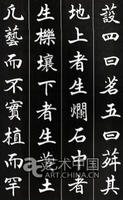 蔎四曰茗五曰荈其
地上者生爛石中者
生櫟壤下者生黃土
凡藝而不實植而罕
艺术中国